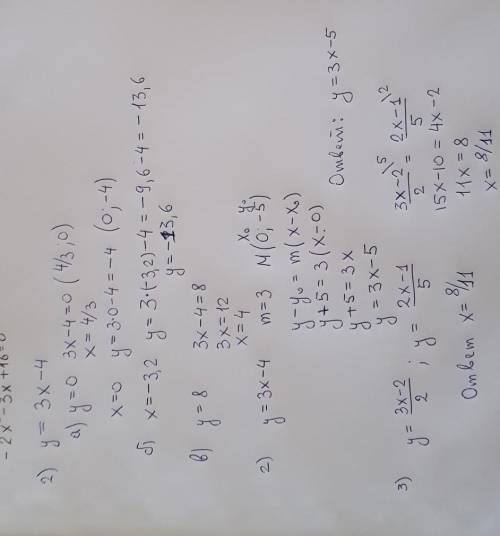 - 2x - 3x + 16 = 0
2) y = 3x - 4
а) y = 0 3x - 4 = 0 (4/3; 0)
x = 4/3
x = 0 y = 3·0 - 4 = -4 (0; -4)
б) x = -3,2 y = 3·(-3,2) - 4 = -9,6 - 4 = -13,6
y = -13,6
в) y = 8 3x - 4 = 8
3x = 12
x = 4
г) y = 3x - 4 m = 3 N(0; -5)
x₀ y₀
y - y₀ = m(x - x₀)
y + 5 = 3(x - 0)
y + 5 = 3x
y = 3x - 5 Ответ: y = 3x - 5
3) y = (3x-2)/2 ; y = (2x-1)/5 (3x-2)/2 \5 = (2x-1)/5 \2
15x - 10 = 4x - 2
11x = 8
x = 8/11
Ответ x = 8/11